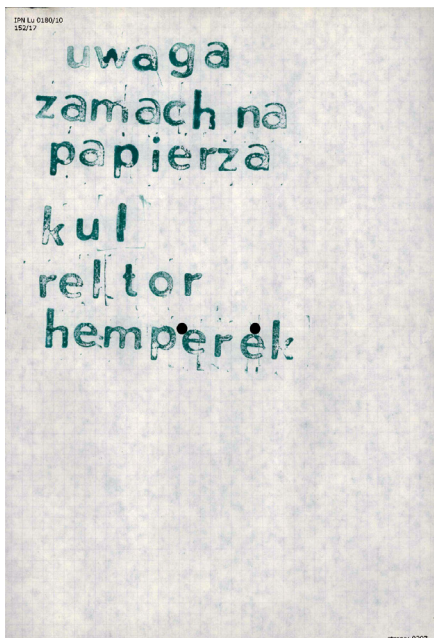 IPN Lu 0180/10
152/17
uwaga
zamach na
papierza
kul
rektor
hemperek